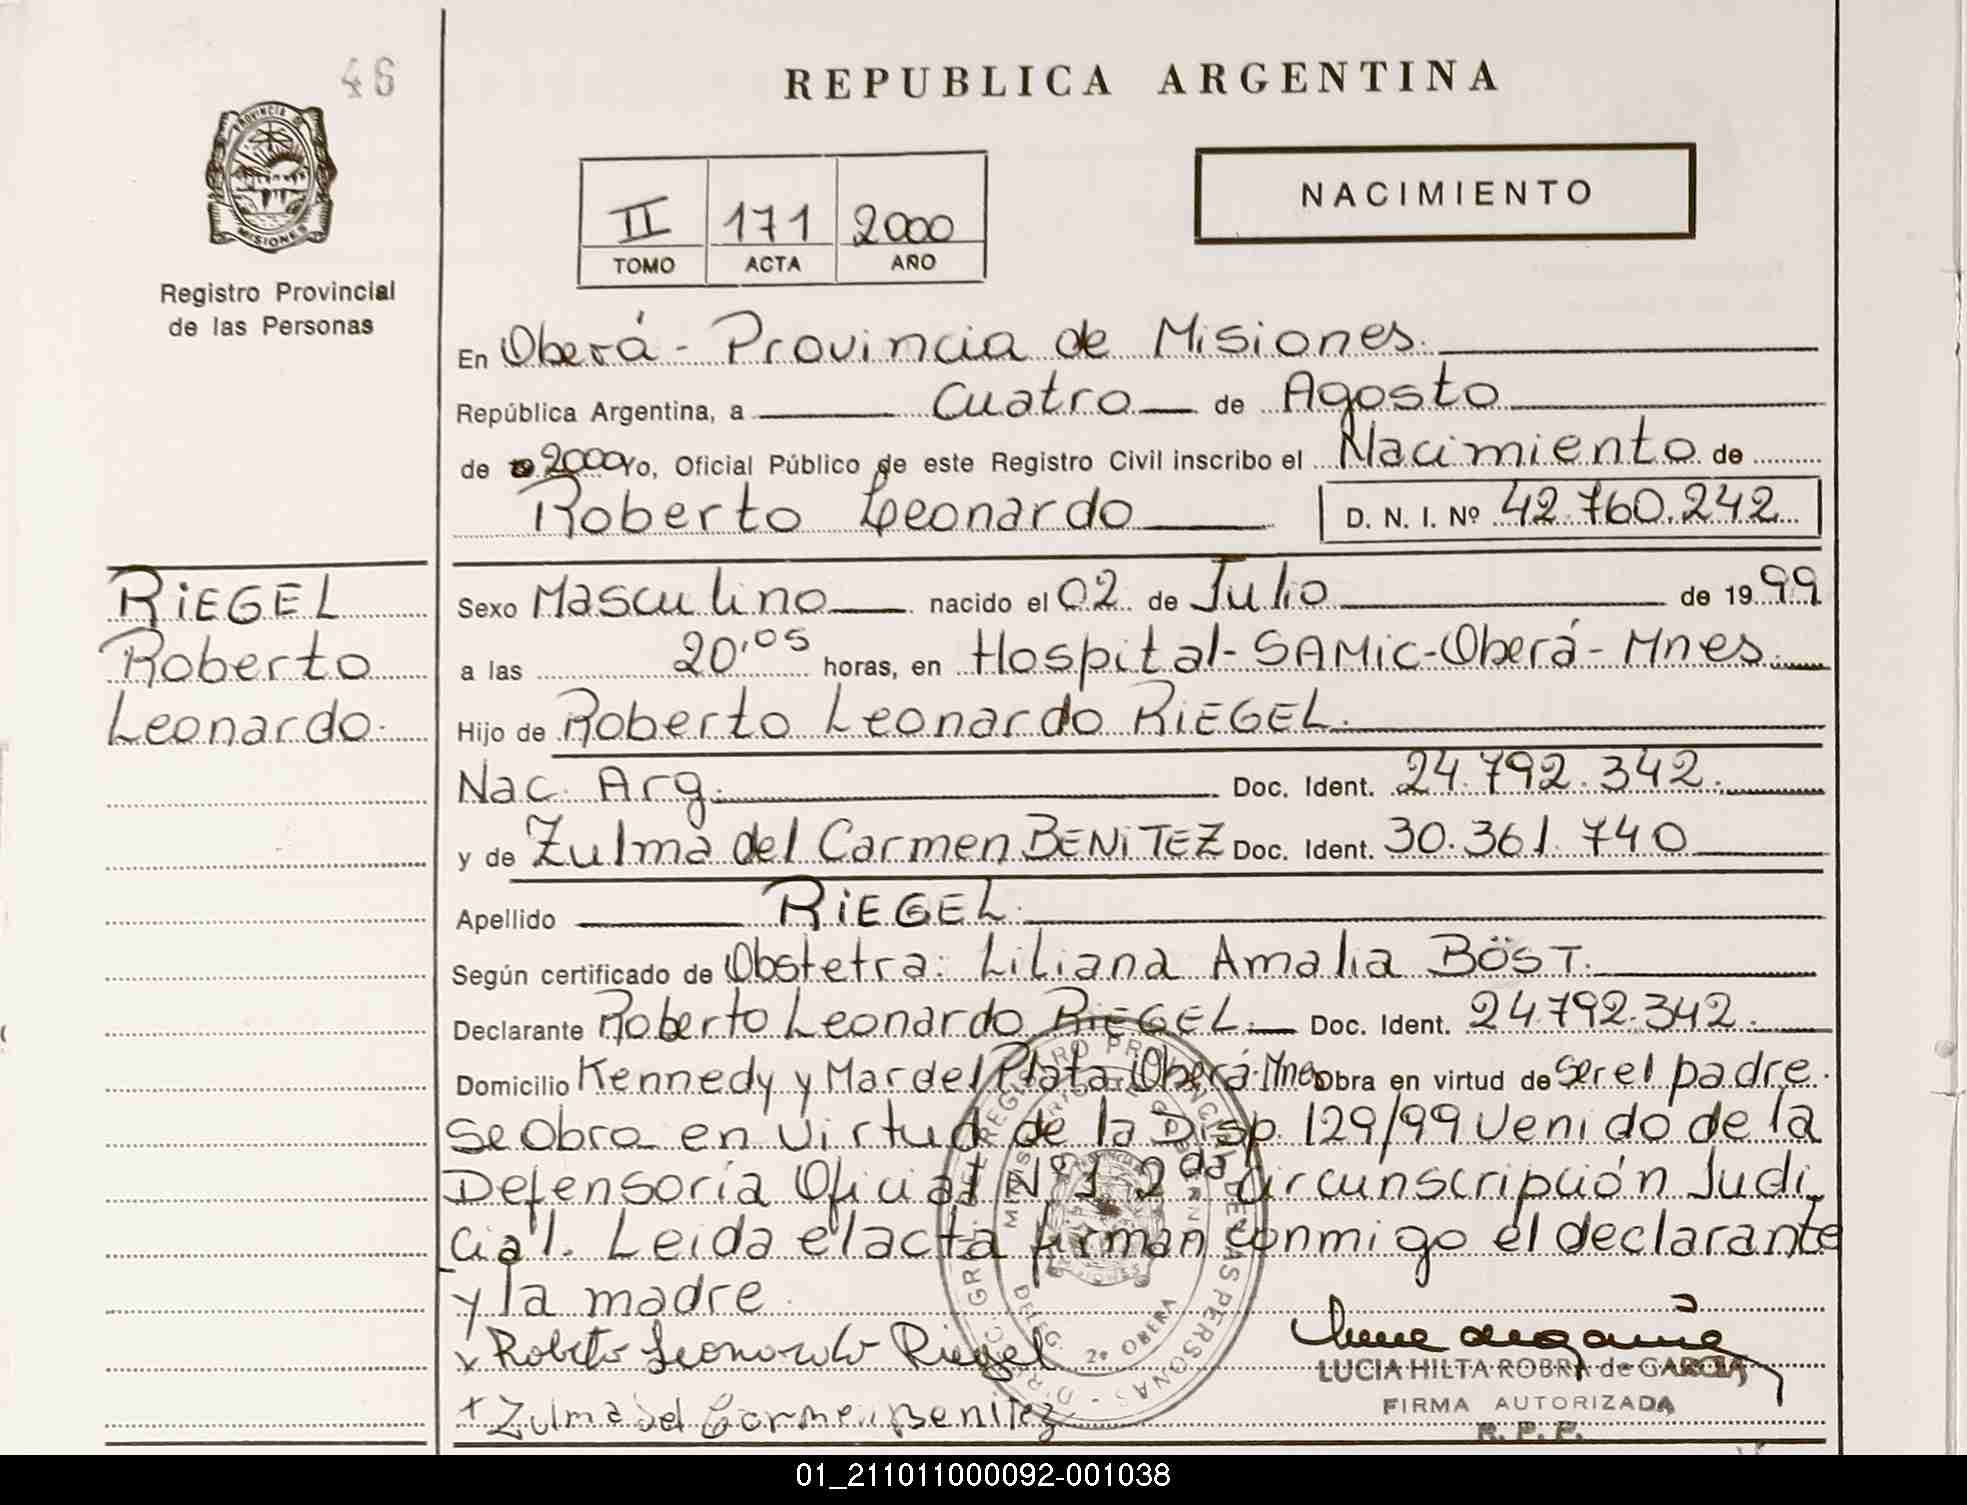 46
REPUBLICA ARGENTINA
PROVINCIA DE
MISIONES
Registro Provincial
de las Personas
II 171 2000
TOMO ACTA AÑO
NACIMIENTO
En Oberá - Provincia de Misiones.
República Argentina, a Cuatro de Agosto
de 2000 Yo, Oficial Público de este Registro Civil inscribo el Nacimiento de
Roberto Leonardo D. N. I. Nº 42.760.242
RIEGEL
Roberto
Leonardo.
Sexo Masculino nacido el 02 de Julio de 1999
a las 20,05 horas, en Hospital-SAMIC-Oberá-Mnes.
Hijo de Roberto Leonardo RIEGEL.
Nac. Arg. Doc. Ident. 24.792.342.
y de Zulma del Carmen BENITEZ Doc. Ident. 30.361.740
Apellido RIEGEL.
Según certificado de Obstetra: Liliana Amalia BÖST.
Declarante Roberto Leonardo RIEGEL. Doc. Ident. 24.792.342.
Domicilio Kennedy y Mar del Plata-Oberá-Mnes Obra en virtud de Ser el padre.
Se Obra en virtud de la Disp. 129/99 Venido de la
Defensoría Oficial Nº 1 2da Circunscripción Judi
cial. Leida el acta firman conmigo el declarante
y la madre.
x Roberto Leonardo Riegel
+ Zulma del Carmen Benitez
LUCIA HILTA ROBRA de GARCIA
FIRMA AUTORIZADA
R. P. P.
DIREC. GRAL. DE REGISTRO PROVINCIAL DE LAS PERSONAS
MINISTERIO DE GOBIERNO
DELEG. 2ª OBERA
01_211011000092-001038